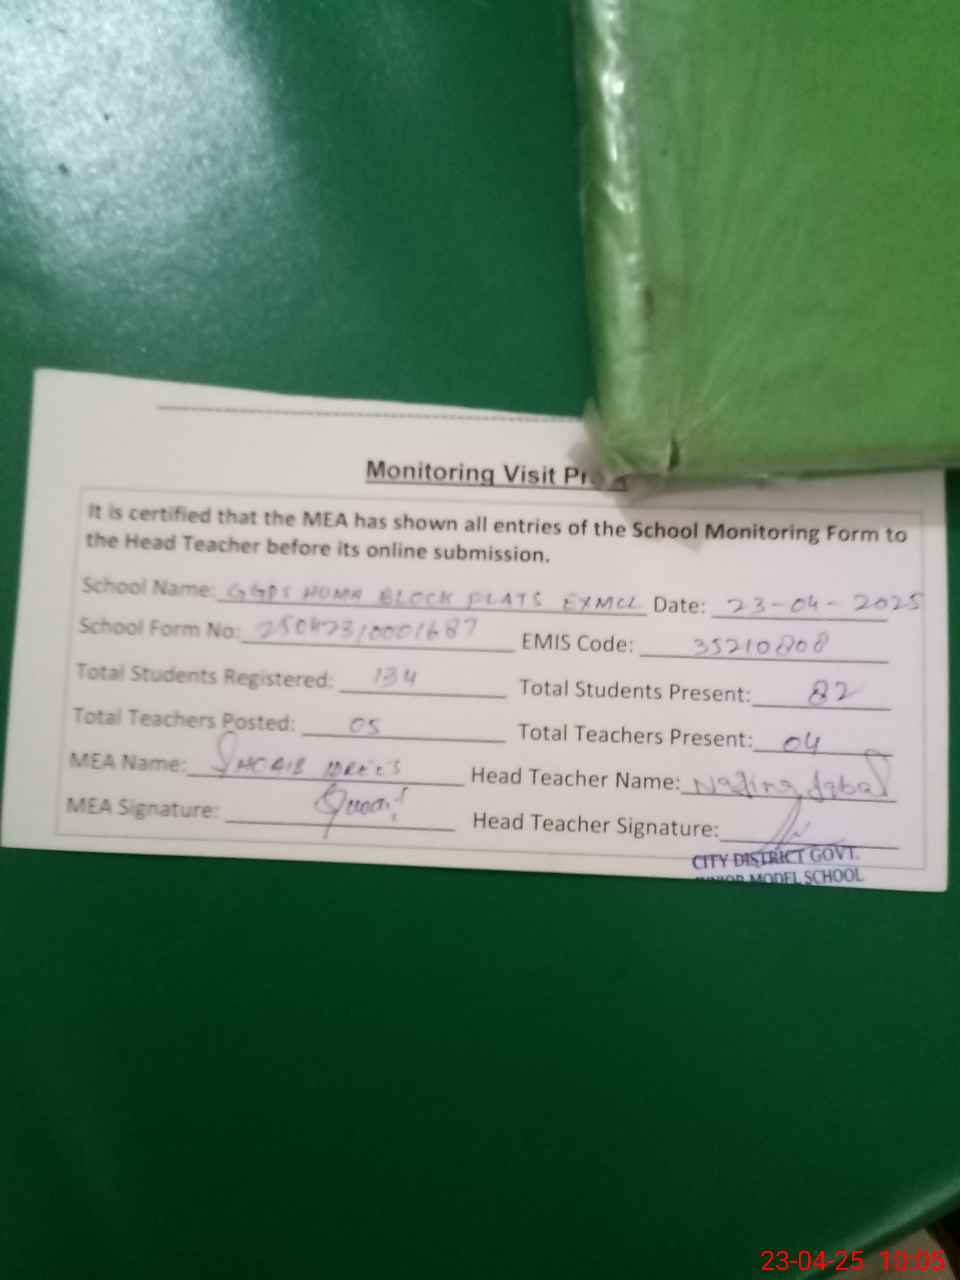 Monitoring Visit
It is certified that the MEA has shown all entries of the School Monitoring Form to
the Head Teacher before its online submission.
School Name: GGPS HUMA BLOCK FLATS EXMCL Date: 23-04-2025
School Form No: EMIS Code: 35210808
Total Students Registered: 134 Total Students Present: 82
Total Teachers Posted: 05 Total Teachers Present: 04
MEA Name: SHOAIB IDREES Head Teacher Name: Iqbal
MEA Signature: Head Teacher Signature:
CITY DISTRICT GOVT.
JUNIOR MODEL SCHOOL
23-04-25 10:05